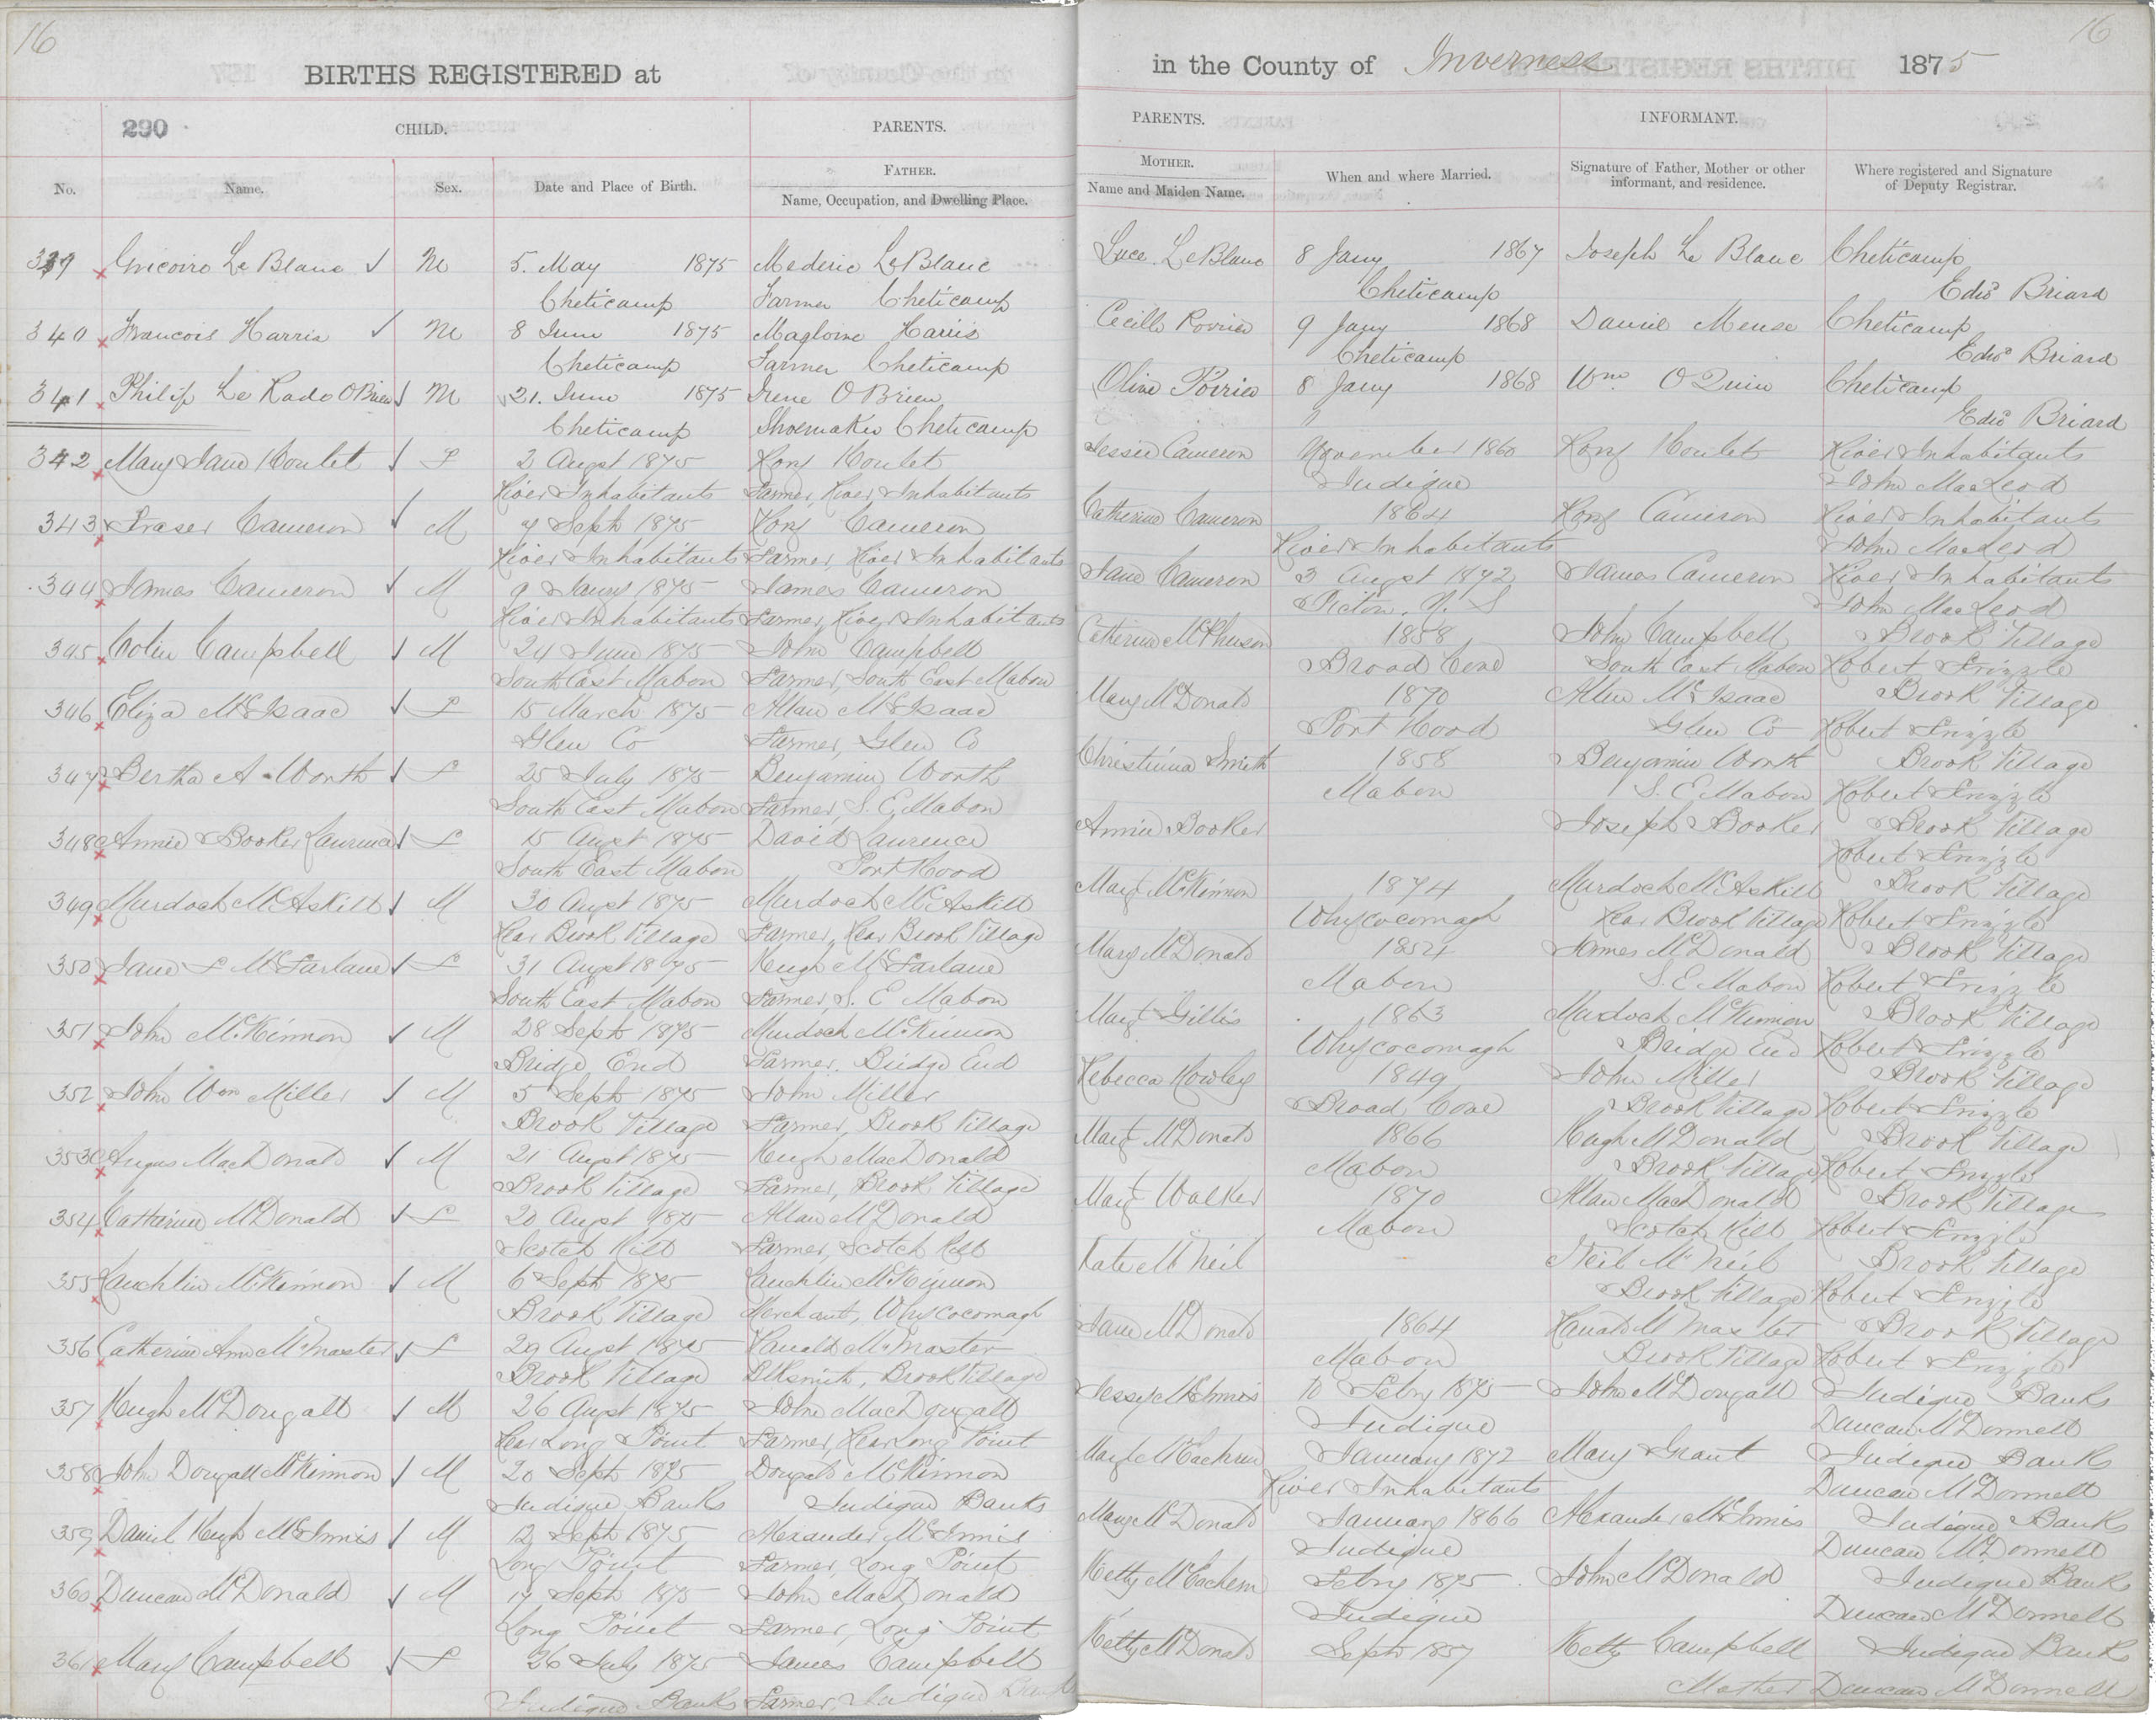 16
16
BIRTHS REGISTERED at in the County of Inverness 1875
290 CHILD. PARENTS. PARENTS. INFORMANT.
No. Name. Sex. Date and Place of Birth. FATHER. Name, Occupation, and Dwelling Place. MOTHER. Name and Maiden Name. When and where Married. Signature of Father, Mother or other informant, and residence. Where registered and Signature of Deputy Registrar.
339 LeBlanc ✓ M 5. May 1875 Mederic LeBlanc Luce LeBlanc 8 Jany 1867 Joseph Le Blanc Cheticamp
Cheticamp Farmer Cheticamp Cheticamp Briard
340 Francois Harris ✓ M 8 June 1875 Magloire Harris Cecille 9 Jany 1868 Cheticamp
Cheticamp Farmer Cheticamp Cheticamp Briard
341 Philip Le OBrien ✓ M 21. June 1875 Irene OBrien Olive 8 Jany 1868 Wm Cheticamp
Cheticamp Shoemaker Cheticamp " Briard
342 Mary Jane ✓ F 2 Augst 1875 Jessie Cameron November 1860 River Inhabitants
River Inhabitants Farmer, River Inhabitants Judique John MacLeod
343 Fraser Cameron ✓ M 7 Sept 1875 Cameron Catherine Cameron 1864 Cameron River Inhabitants
River Inhabitants Farmer, River Inhabitants River Inhabitants John MacLeod
344 James Cameron ✓ M 9 Jany 1875 James Cameron Jane Cameron 3 Augst 1872 James Cameron River Inhabitants
River Inhabitants Farmer, River Inhabitants Pictou, N. S John MacLeod
345 Colin Campbell ✓ M 24 June 1875 John Campbell Catherine McPherson 1858 John Campbell Brook Village
South East Mabou Farmer, South East Mabou Broad Cove South East Mabou Robert Frizzle
346 Eliza McIsaac ✓ F 15 March 1875 Allan McIsaac Mary McDonald 1870 Allan McIsaac Brook Village
Glen Co Farmer, Glen Co Port Hood Glen Co Robert Frizzle
347 Bertha A. Worth ✓ F 25 July 1875 Benjamin Worth Christinna Smith 1858 Benjamin Worth Brook Village
South East Mabou Farmer, S. E. Mabou Mabou S. E Mabou Robert Frizzle
348 Annie Booker Laurence ✓ F 15 Augst 1875 David Laurence Annie Booker Joseph Booker Brook Village
South East Mabou Port Hood Robert Frizzle
349 Murdoch McAskill ✓ M 30 Augst 1875 Murdoch McAskill Margt McKinnon 1874 Murdoch McAskill Brook Village
Rear Brook Village Farmer, Rear Brook Village Whycocomagh Rear Brook Village Robert Frizzle
350 Jane F McFarlane ✓ F 31 Augst 1875 Hugh McFarlane Mary McDonald 1854 James McDonald Brook Village
South East Mabou Farmer, S. E Mabou Mabou S. E Mabou Robert Frizzle
351 John McKinnon ✓ M 28 Sept 1875 Murdoch McKinnon Margt Gillis 1863 Murdoch McKinnon Brook Village
Bridge End Farmer, Bridge End Whycocomagh Bridge End Robert Frizzle
352 John Wm Miller ✓ M 5 Sept 1875 John Miller Rebecca Rowley 1849 John Miller Brook Village
Brook Village Farmer, Brook Village Broad Cove Brook Village Robert Frizzle
353 Angus MacDonald ✓ M 21 Augst 1875 Hugh MacDonald Margt McDonald 1866 Hugh McDonald Brook Village
Brook Village Farmer, Brook Village Mabou Brook Village Robert Frizzle
354 Catharine McDonald ✓ F 20 Augst 1875 Allan McDonald Margt Walker 1870 Allan MacDonald Brook Village
Scotch Hill Farmer, Scotch Hill Mabou Scotch Hill Robert Frizzle
355 Lauchlin McKinnon ✓ M 6 Sept 1875 Lauchlin McKinnon Kate McNeil Neil McNeil Brook Village
Brook Village Merchant, Whycocomagh Brook Village Robert Frizzle
356 Catherine Ann McMaster ✓ F 29 Augst 1875 Ranald McMaster Jane McDonald 1864 Ranald McMaster Brook Village
Brook Village Blksmith, Brook Village Mabou Brook Village Robert Frizzle
357 Hugh McDougall ✓ M 26 Augst 1875 John MacDougall Jessy McInnis 10 Febry 1875 John McDougall Judique Banks
Rear Long Point Farmer, Rear Long Point Judique Duncan McDonnell
358 John Dougall McKinnon ✓ M 20 Sept 1875 Dougald McKinnon Margt McEachern January 1872 Mary Grant Judique Banks
Judique Banks Judique Banks River Inhabitants Duncan McDonnell
359 Daniel Hugh McInnis ✓ M 12 Sept 1875 Alexander McInnis Mary McDonald January 1866 Alexander McInnis Judique Banks
Long Point Farmer, Long Point Judique Duncan McDonnell
360 Duncan McDonald ✓ M 17 Sept 1875 John MacDonald Ketty McEachern Febry 1875 John McDonald Judique Banks
Long Point Farmer, Long Point Judique Duncan McDonnell
361 Mary Campbell ✓ F 26 July 1875 James Campbell Ketty McDonald Sept 1857 Ketty Campbell Judique Banks
Judique Banks Farmer, Judique Banks Mother Duncan McDonnell